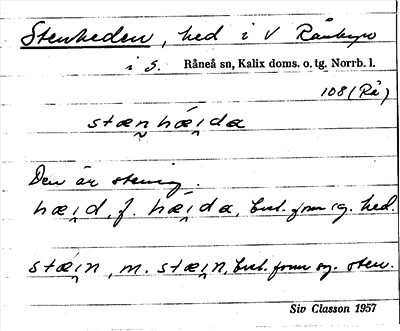 Stenheden, hed i V Rånbyn
i S. Råneå sn, Kalix doms. o. tg. Norrb. l.
108 (Rå)
stæn̥hǽi̯da
Den är stenig.
hæi̯d, f. hǽi̯da, best. form sg. hed.
stǽi̯n, m. stæi̯n, best. form sg. sten.
Siv Classon 1957